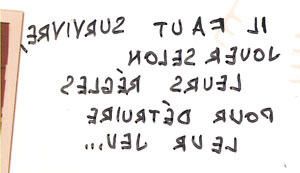 IL FAUT SURVIVRE,
JOUER SELON
LEURS RÈGLES
POUR DÉTRUIRE
LEUR JEU...